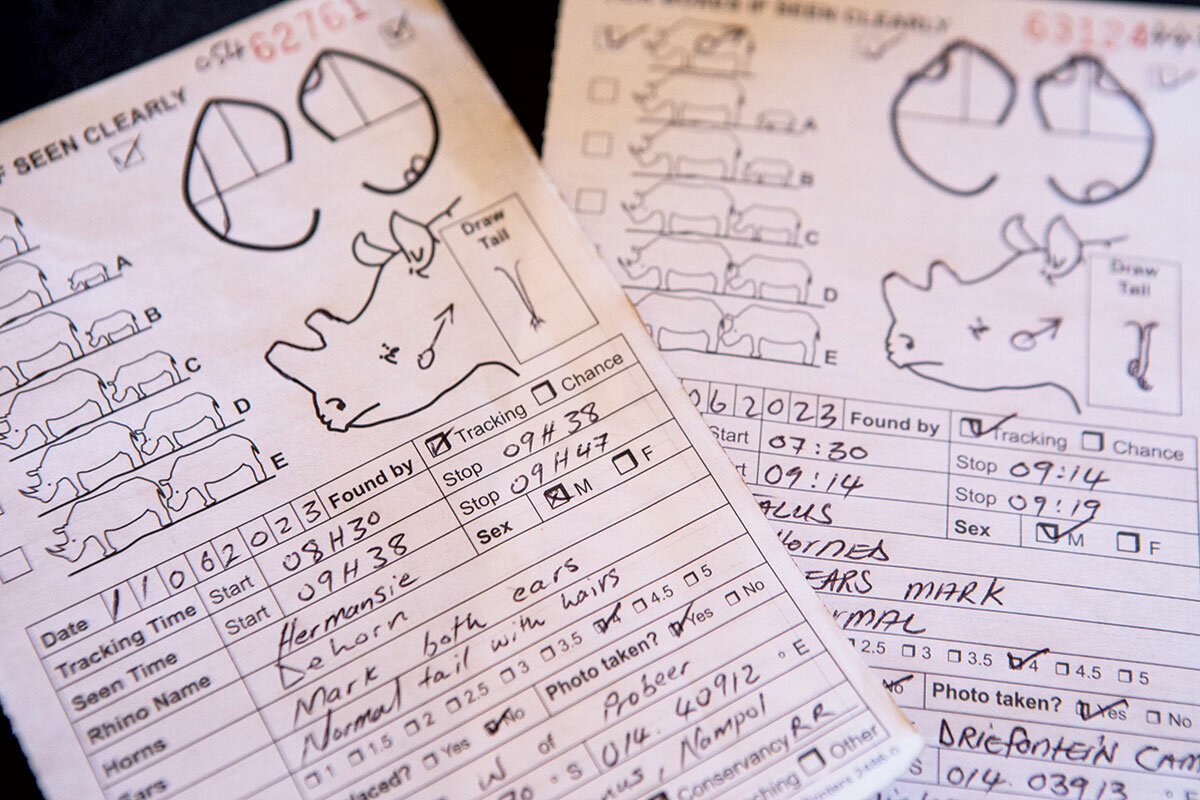 054 62761
F SEEN CLEARLY
A
B
C
D
E
Draw
Tail
Date 11062023 Found by Tracking Chance
Tracking Time Start 08H30 Stop 09H38
Seen Time Start 09H38 Stop 09H47
Rhino Name Hermansie Sex M F
Horns Dehorn
Ears Mark both ears
Normal tail with hairs
1 1.5 2 2.5 3 3.5 4 4.5 5
laced? Yes No Photo taken? Yes No
W of Probeer
° S 014.40912 ° E
Nampol
Conservancy RR
Other
IF SEEN CLEARLY
63124
A
B
C
D
E
Draw
Tail
062023 Found by Tracking Chance
Start 07:30 Stop 09:14
09:14 Stop 09:19
ALUS Sex M F
HORNED
EARS MARK
RMAL
2.5 3 3.5 4 4.5 5
No Photo taken? Yes No
DRIEFONTEIN CAM
S 014.03913 ° E